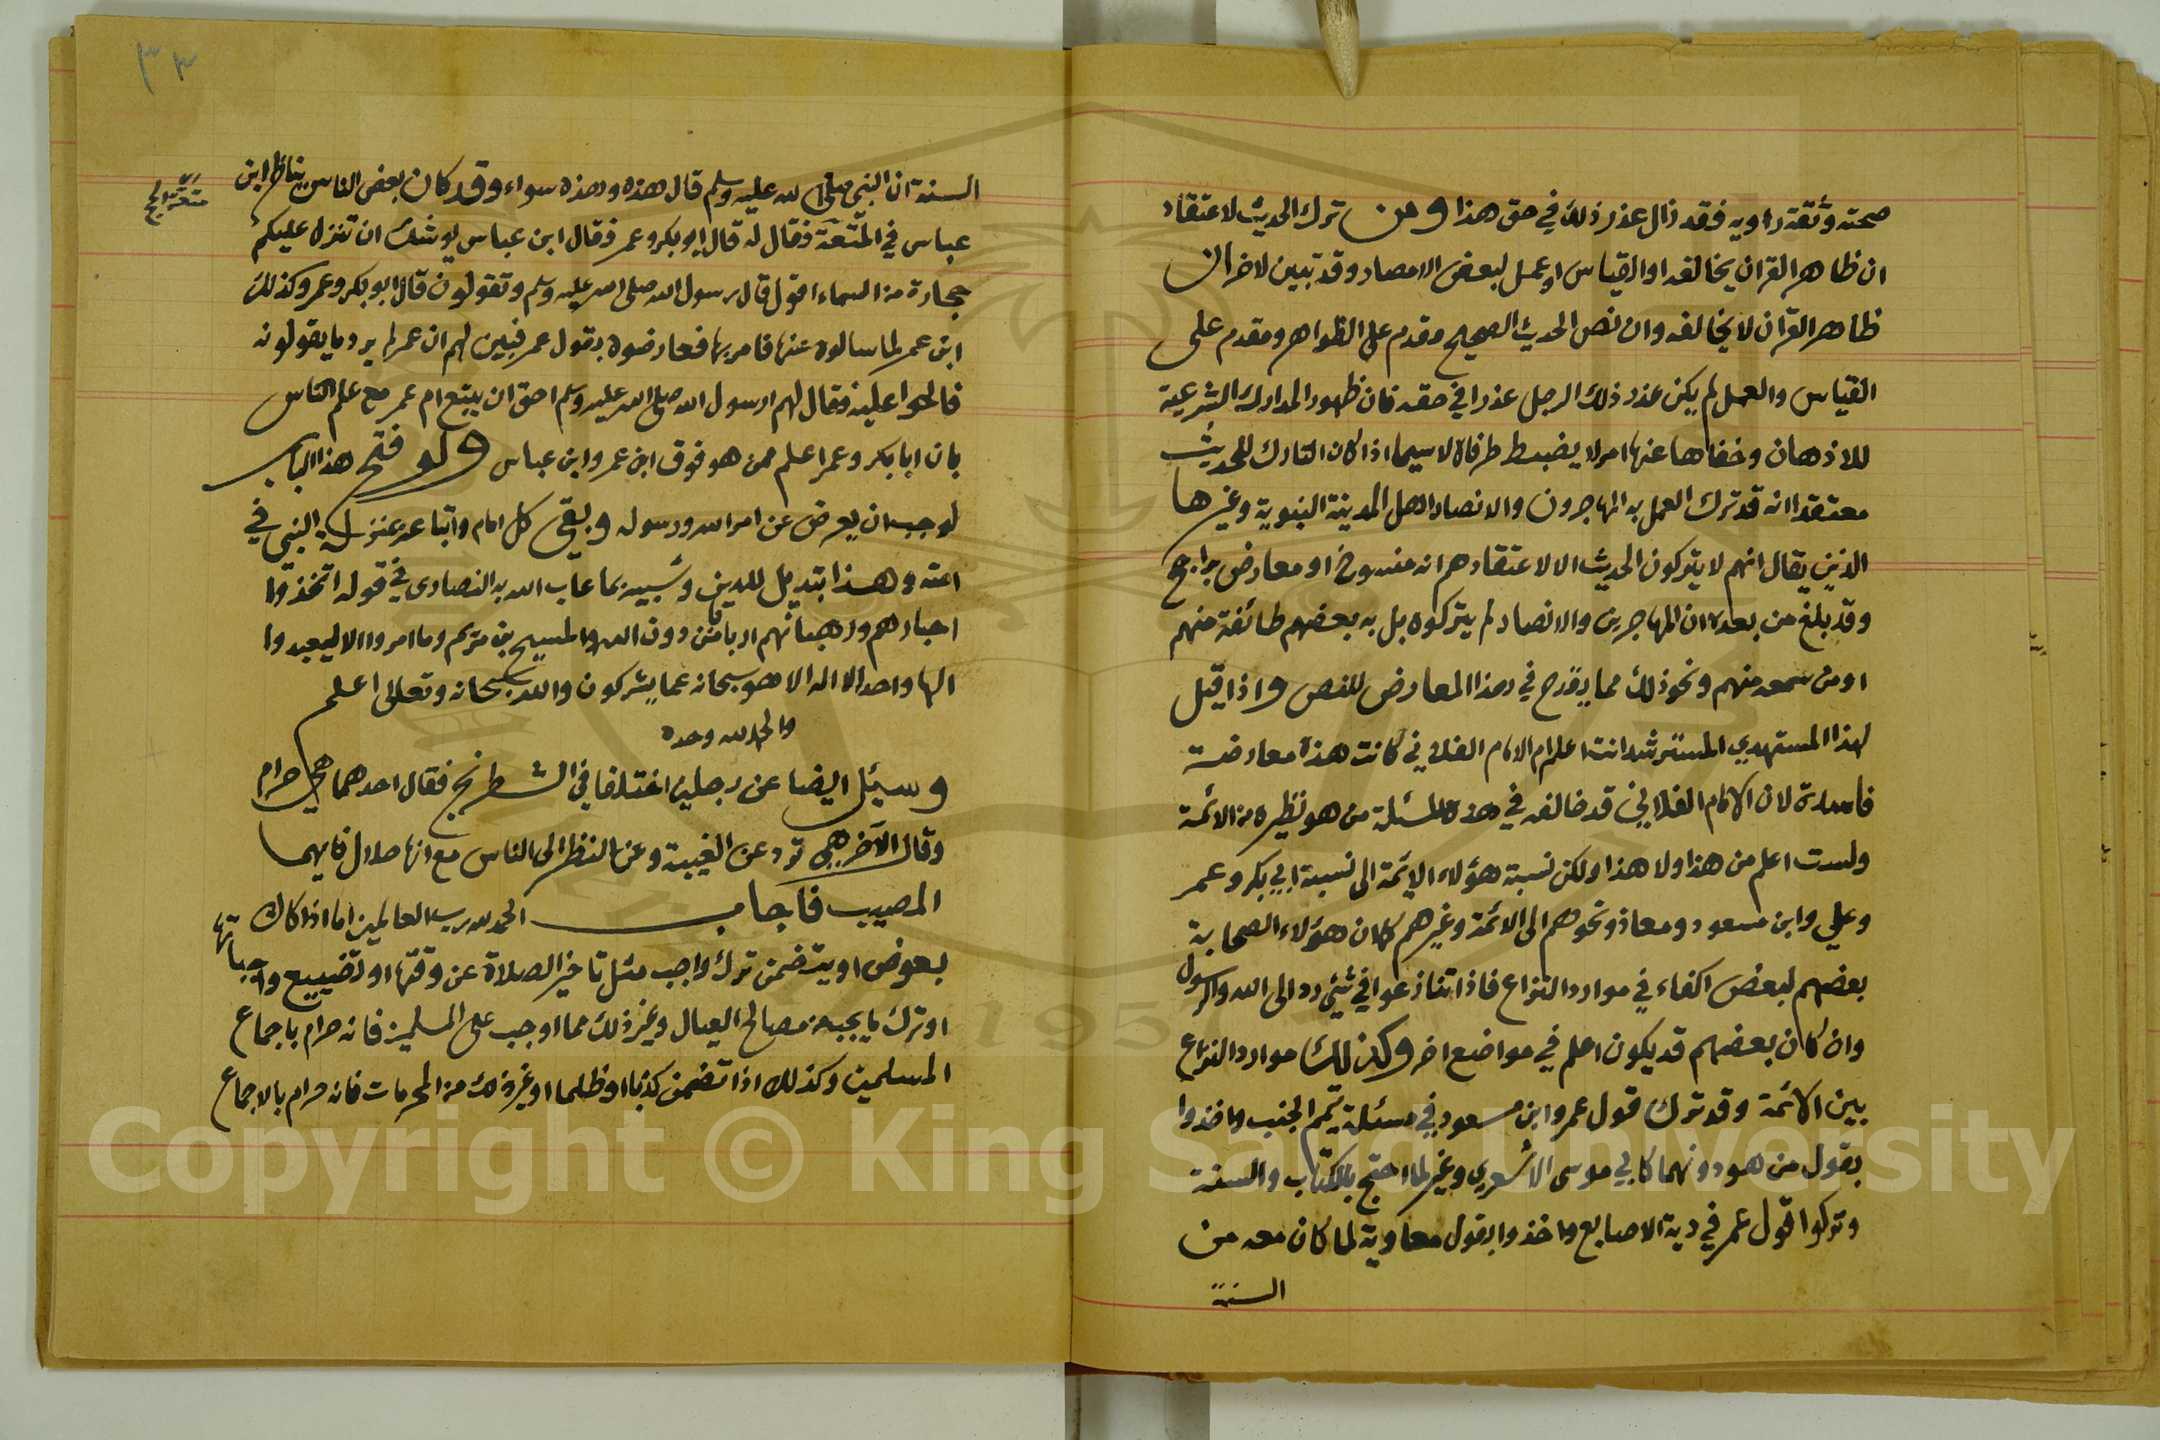 صحته وثقة راويه فقد زال عذر ذلك في حق هذا ومن ترك الحديث لاعتقاد
ان ظاهر القران يخالفه او القياس او عمل لبعض الامصار وقد تبين لاخر ان
ظاهر القران لا يخالفه وان نص الحديث الصحيح مقدم على الظواهر ومقدم على
القياس والعمل لم يكن عذر ذلك الرجل عذرا في حقه فان ظهور المدارك الشرعية
للاذهان وخفاها عنها امر لا يضبط طرفاه لا سيما اذا كان التارك للحديث
معتقدا انه قد ترك العمل به المهاجرون والانصار اهل المدينة النبوية وغيرها
الذين يقال انهم لا يتركون الحديث الا لاعتقادهم انه منسوخ او معارض براجح
وقد بلغ من بعده ان المهاجرين والانصار لم يتركوه بل به بعضهم طائفة منهم
او من سمعه منهم ونحو ذلك مما يقدح في هذا المعارض للنص واذا قيل
لهذا المستهدي المسترشد انت اعلم ام الامام الفلاني كانت هذه معارضة
فاسدة لان الامام الفلاني قد خالفه في هذه المسئلة من هو نظيره من الائمة
ولست اعلم من هذا ولا هذا ولكن نسبة هؤلاء الائمة الى نسبة ابي بكر وعمر
وعلي وابن مسعود ومعاذ ونحوهم الى الائمة وغيرهم فكان هؤلاء الصحابة
بعضهم لبعض اكفاء في موارد النزاع فاذا تنازعوا في شئ رد الى الله والرسول
وان كان بعضهم قد يكون اعلم في مواضع اخر وكذلك موارد النزاع
بين الائمة وقد ترك قول عمر وابن مسعود في مسئلة تيمم الجنب واخذوا
بقول من هو دونهما كابي موسى الاشعري وغيره لما احتج بالكتاب والسنة
وتركوا قول عمر في دية الاصابع واخذوا بقول معاوية لما كان معه من
السنة
٣٣
السنة ان النبي صلى الله عليه وسلم قال هذه وهذه سواء وقد كان بعض الناس يناظر ابن
متعة الحج
عباس في المتعة فقال له قال ابو بكر وعمر فقال ابن عباس يوشك ان تنزل عليكم
حجارة من السماء اقول قال رسول الله صلى الله عليه وسلم وتقولون قال ابو بكر وعمر وكذلك
ابن عمر لما سالوه عنها فامر بها فعارضوه بقول عمر فبين لهم ان عمر لم يرد ما يقولونه
فالحوا عليه فقال لهم ارسول الله صلى الله عليه وسلم احق ان يتبع ام عمر مع علم الناس
بان ابا بكر وعمر اعلم ممن هو فوق ابن عمر وابن عباس ولو فتح هذا الباب
لوجب ان يعرض عن امر الله ورسوله وبقي كل امام واتباعه بمنزلة النبي في
امته وهذا تبديل للدين وشبيه بما عاب الله به النصارى في قوله اتخذوا
احبارهم ورهبانهم اربابا من دون الله والمسيح بن مريم وما امروا الا ليعبدوا
الها واحدا لا اله الا هو سبحانه عما يشركون والله سبحانه وتعالى اعلم
والحمد لله وحده
وسئل ايضا عن رجلين اختلفا في الشطرنج فقال احدهما هي حرام
وقال الآخر هي ترد عن الغيبة وعن النظر الى الناس مع انها حلال فايهما
المصيب فاجاب الحمد لله رب العالمين اما اذا كان
بعوض او يتضمن ترك واجب مثل تاخير الصلاة عن وقتها او تضييع واجباتها
او ترك ما يجب من مصالح العيال وغير ذلك مما اوجب على المسلمين فانه حرام باجماع
المسلمين وكذلك اذا تضمن كذبا او ظلما او غير ذلك من المحرمات فانه حرام بالاجماع
Copyright © King Saud University
1957